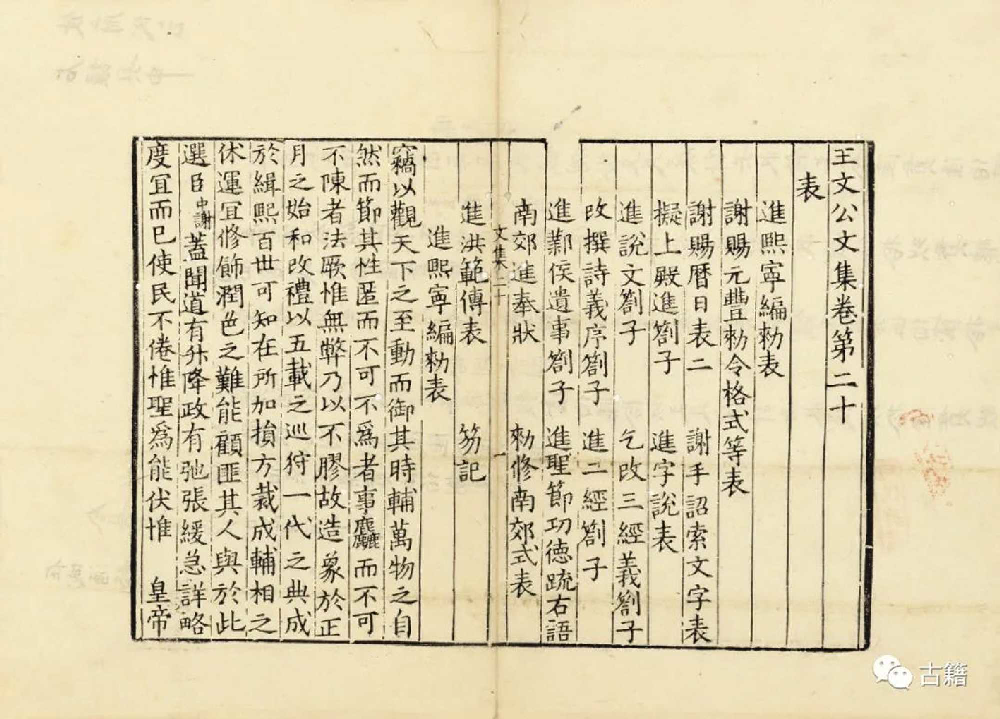 王文公文集卷第二十
表
進熙寧編勑表
謝賜元豐勑令格式等表
謝賜曆日表二　謝手詔索文字表
擬上殿進劄子　進字說表
進說文劄子　乞改三經義劄子
改撰詩義序劄子　進二經劄子
進鄴侯遺事劄子　進聖節功德疏右語
南郊進奉狀　勑修南郊式表
文集二十　一
進洪範傳表　笏記
進熙寧編勑表
竊以觀天下之至動而御其時輔萬物之自
然而節其性匿而不可不爲者事麤而不可
不陳者法厥惟無弊乃以不膠故造象於正
月之始和改禮以五載之巡狩一代之典成
於緝熙百世可知在所加損方裁成輔相之
休運宜修飾潤色之難能顧匪其人與於此
選臣中謝蓋聞道有升降政有弛張緩急詳略
度宜而已使民不倦惟聖爲能伏惟　皇帝
古籍